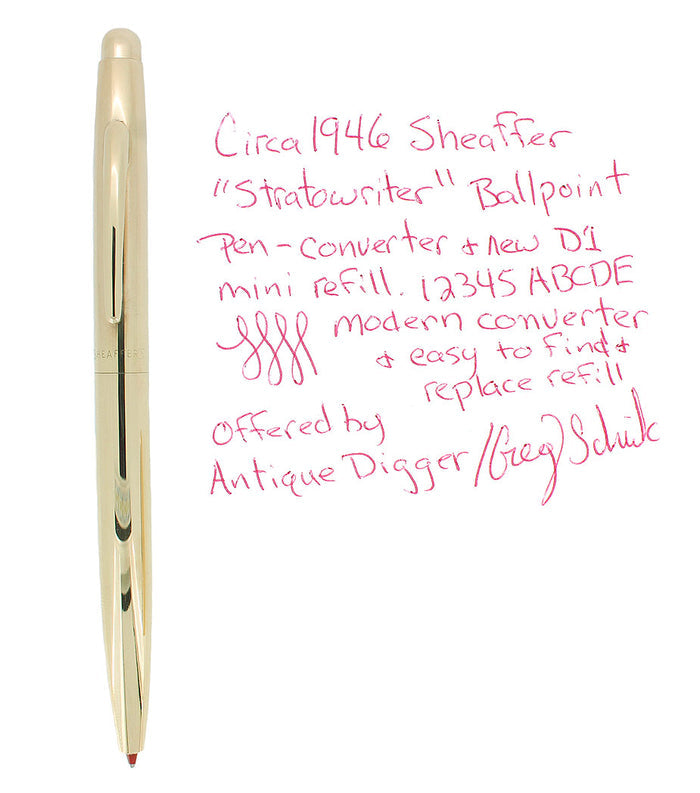 Circa 1946 Sheaffer
"Stratowriter" Ballpoint
Pen - converter + new D1
mini refill. 12345 ABCDE
modern converter
+ easy to find +
replace refill
offered by
Antique Digger / Greg
SHEAFFER'S